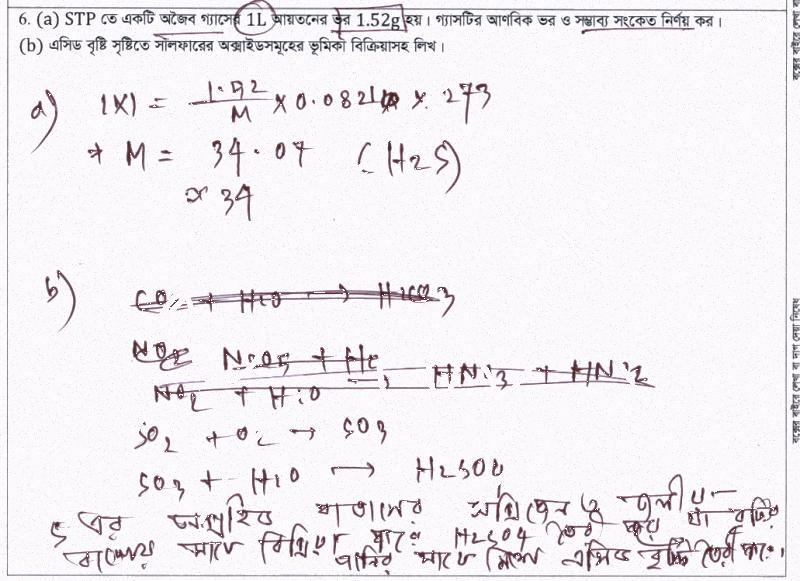 6. (a) STP তে একটি অজৈব গ্যাসের 1L আয়তনের ভর 1.52g হয়। গ্যাসটির আণবিক ভর ও সম্ভাব্য সংকেত নির্ণয় কর।
(b) এসিড বৃষ্টি সৃষ্টিতে সালফারের অক্সাইডসমূহের ভূমিকা বিক্রিয়াসহ লিখ।
a) 1×1 = 1.52/M × 0.0821 × 273
→ M = 34.07 (H2S)
≈ 34
b) CO2 + H2O → H2CO3
NO2 N2O5 + H2
NO2 + H2O → HNO3 + HNO2
SO2 + O2 → SO3
SO3 + H2O → H2SO4
S এর বাতাসের অক্সিজেন ও জলীয়
বাষ্পের সাথে বিক্রিয়া করে H2SO4 তৈরি করে যা বৃষ্টির
পানির সাথে মিশে এসিড বৃষ্টি তৈরী করে।